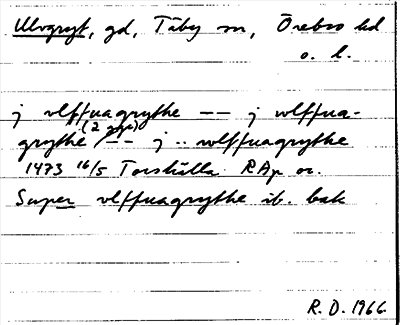 Ulvgryt, gd, Täby sn, Örebro hd
o. l.
j vlffuagrythe –– j wlffua-
grythe (2 ggr) –– j .. wlffuagrythe
1473 16/5 Torshälla RAp or.
Super vlffuagrythe ib. bak
R. D. 1966.